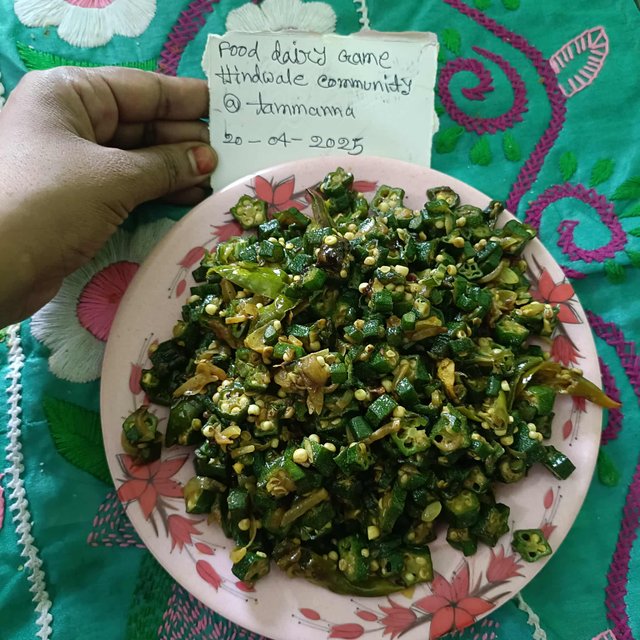 Food dairy Game
Hindwale community
@ tammanna
20-04-2025